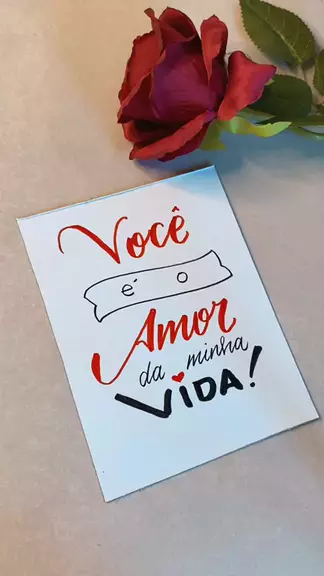 Você
é o
Amor
da minha
VIDA!